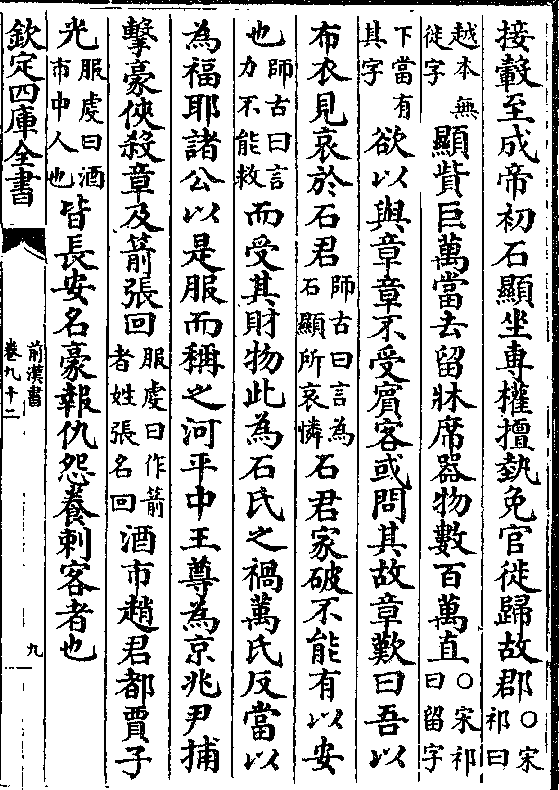 接轂至成帝初石顯坐専權擅埶免官徙歸故郡○宋祁曰
越本無徙字顯貲巨萬當去留牀席器物數百萬直○宋祁曰留字
下當有其字欲以與章章不受賔客或問其故章歎曰吾以
布衣見哀於石君師古曰言為石顯所哀憐石君家破不能有以安
也師古曰言力不能救而受其財物此為石氏之禍萬氏反當以
為福耶諸公以是服而稱之河平中王尊為京兆尹捕
擊豪俠殺章及箭張回服虔曰作箭者姓張名回酒市趙君都賈子
光服虔曰酒市中人也皆長安名豪報仇怨養刺客者也
欽定四庫全書
前漢書
卷九十二
九